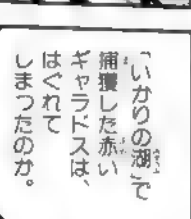 「いかりの湖」で
捕獲した赤い
ギャラドスは、
はぐれて
しまったのか。